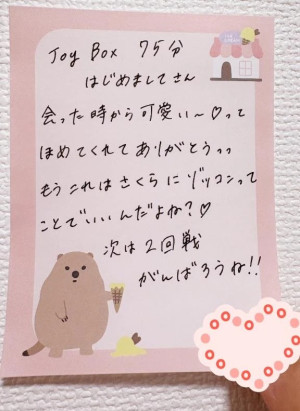 Joy Box 75分
はじめましてさん
会った時から可愛い〜♡って
ほめてくれてありがとうっっ
もうこれはさくらにゾッコンって
ことでいいんだよね?♡
次は2回戦
がんばろうね!!